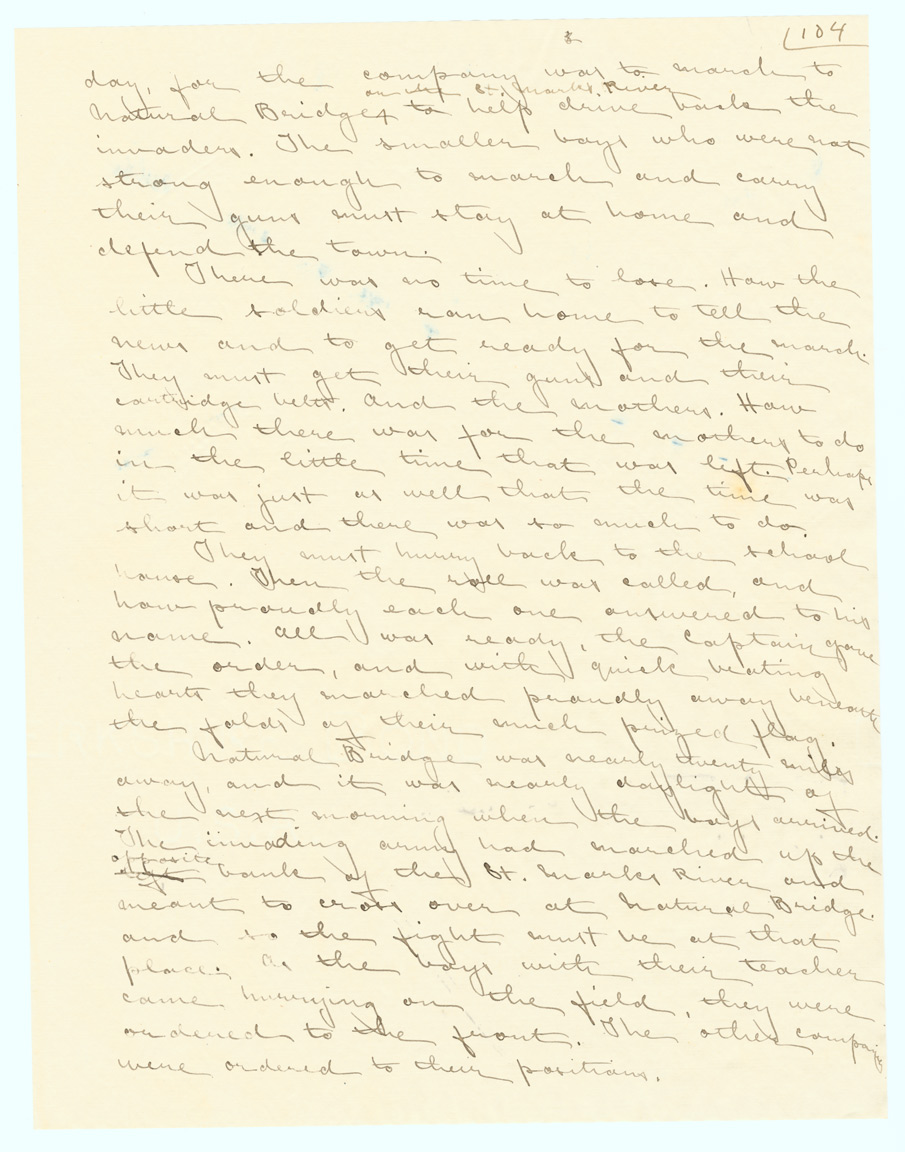 104
day, for the company was to march to
on the St. Marks River
Natural Bridge, to help drive back the
invaders. The smaller boys who were not
strong enough to march and carry
their guns must stay at home and
defend the town.
There was no time to lose. How the
little soldiers ran home to tell the
news and to get ready for the march.
They must get their guns and their
cartridge belts. And the mothers. How
much there was for the mothers to do
in the little time that was left. Perhaps
it was just as well that the time was
short and there was so much to do.
They must hurry back to the school
house. Then the roll was called, and
how proudly each one answered to his
name. All was ready, the Captain gave
the order, and with quick beating
hearts they marched proudly away beneath
the folds of their much prized flag.
Natural Bridge was nearly twenty miles
away, and it was nearly daylight of
the next morning when the boys arrived.
The invading army had marched up the
opposite
bank of the St. Marks River and
meant to cross over at Natural Bridge.
and so the fight must be at that
place. As the boys with their teacher
came hurrying on the field, they were
ordered to the front. The other
were ordered to their positions.